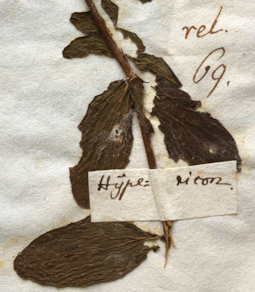 rel.
69.
Hÿpe= ricon.